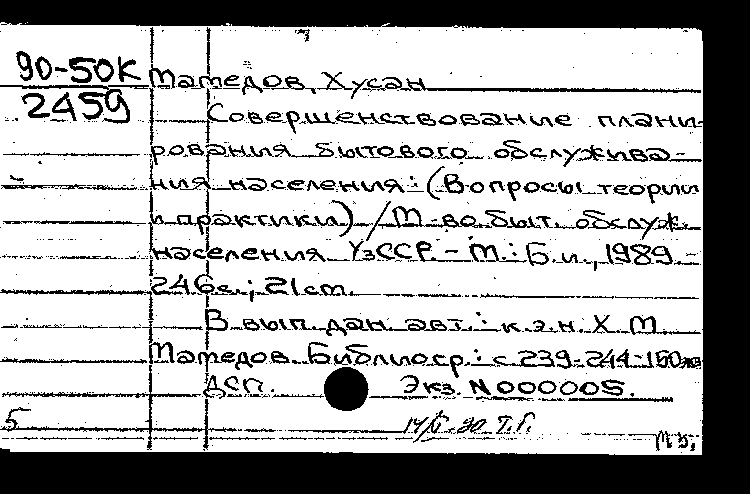 90-50К Мамедов, Хусан
2459 Совершенствование плани-
рования бытового обслужива-
ния населения: (Вопросы теории
и практики) / М-во быт. обслуж.
населения УзССР. - М.: Б.и., 1989. -
246с.; 21см.
В вып. дан. авт.: к.э.н. Х М.
Мамедов. Библиогр.: с. 239-244-150
ДСП. Экз. N 000005.
5